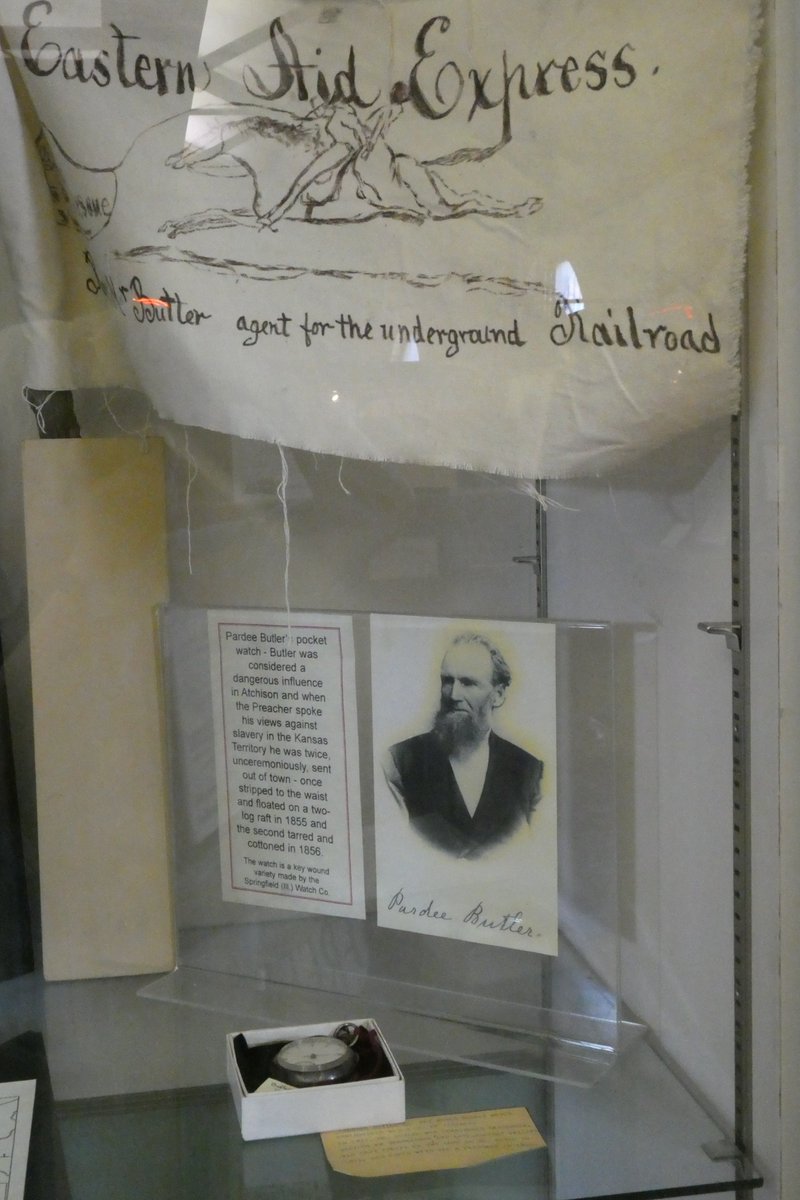 Eastern Aid Express.
Butler agent for the underground Railroad
Pardee Butler's pocket
watch - Butler was
considered a
dangerous influence
in Atchison and when
the Preacher spoke
his views against
slavery in the Kansas
Territory he was twice,
unceremoniously, sent
out of town - once
stripped to the waist
and floated on a two-
log raft in 1855 and
the second tarred and
cottoned in 1856.
The watch is a key wound
variety made by the
Springfield (Ill.) Watch Co.
Pardee Butler.